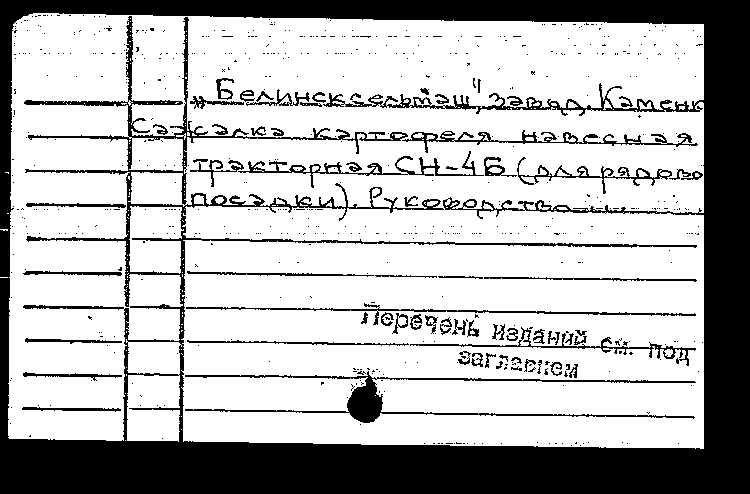 „Белинсксельмаш", завод. Каменк
Сажалка картофеля навесная
тракторная СН-4Б (для рядово
посадки). Руководство ...
Перечень изданий см. под
заглавием